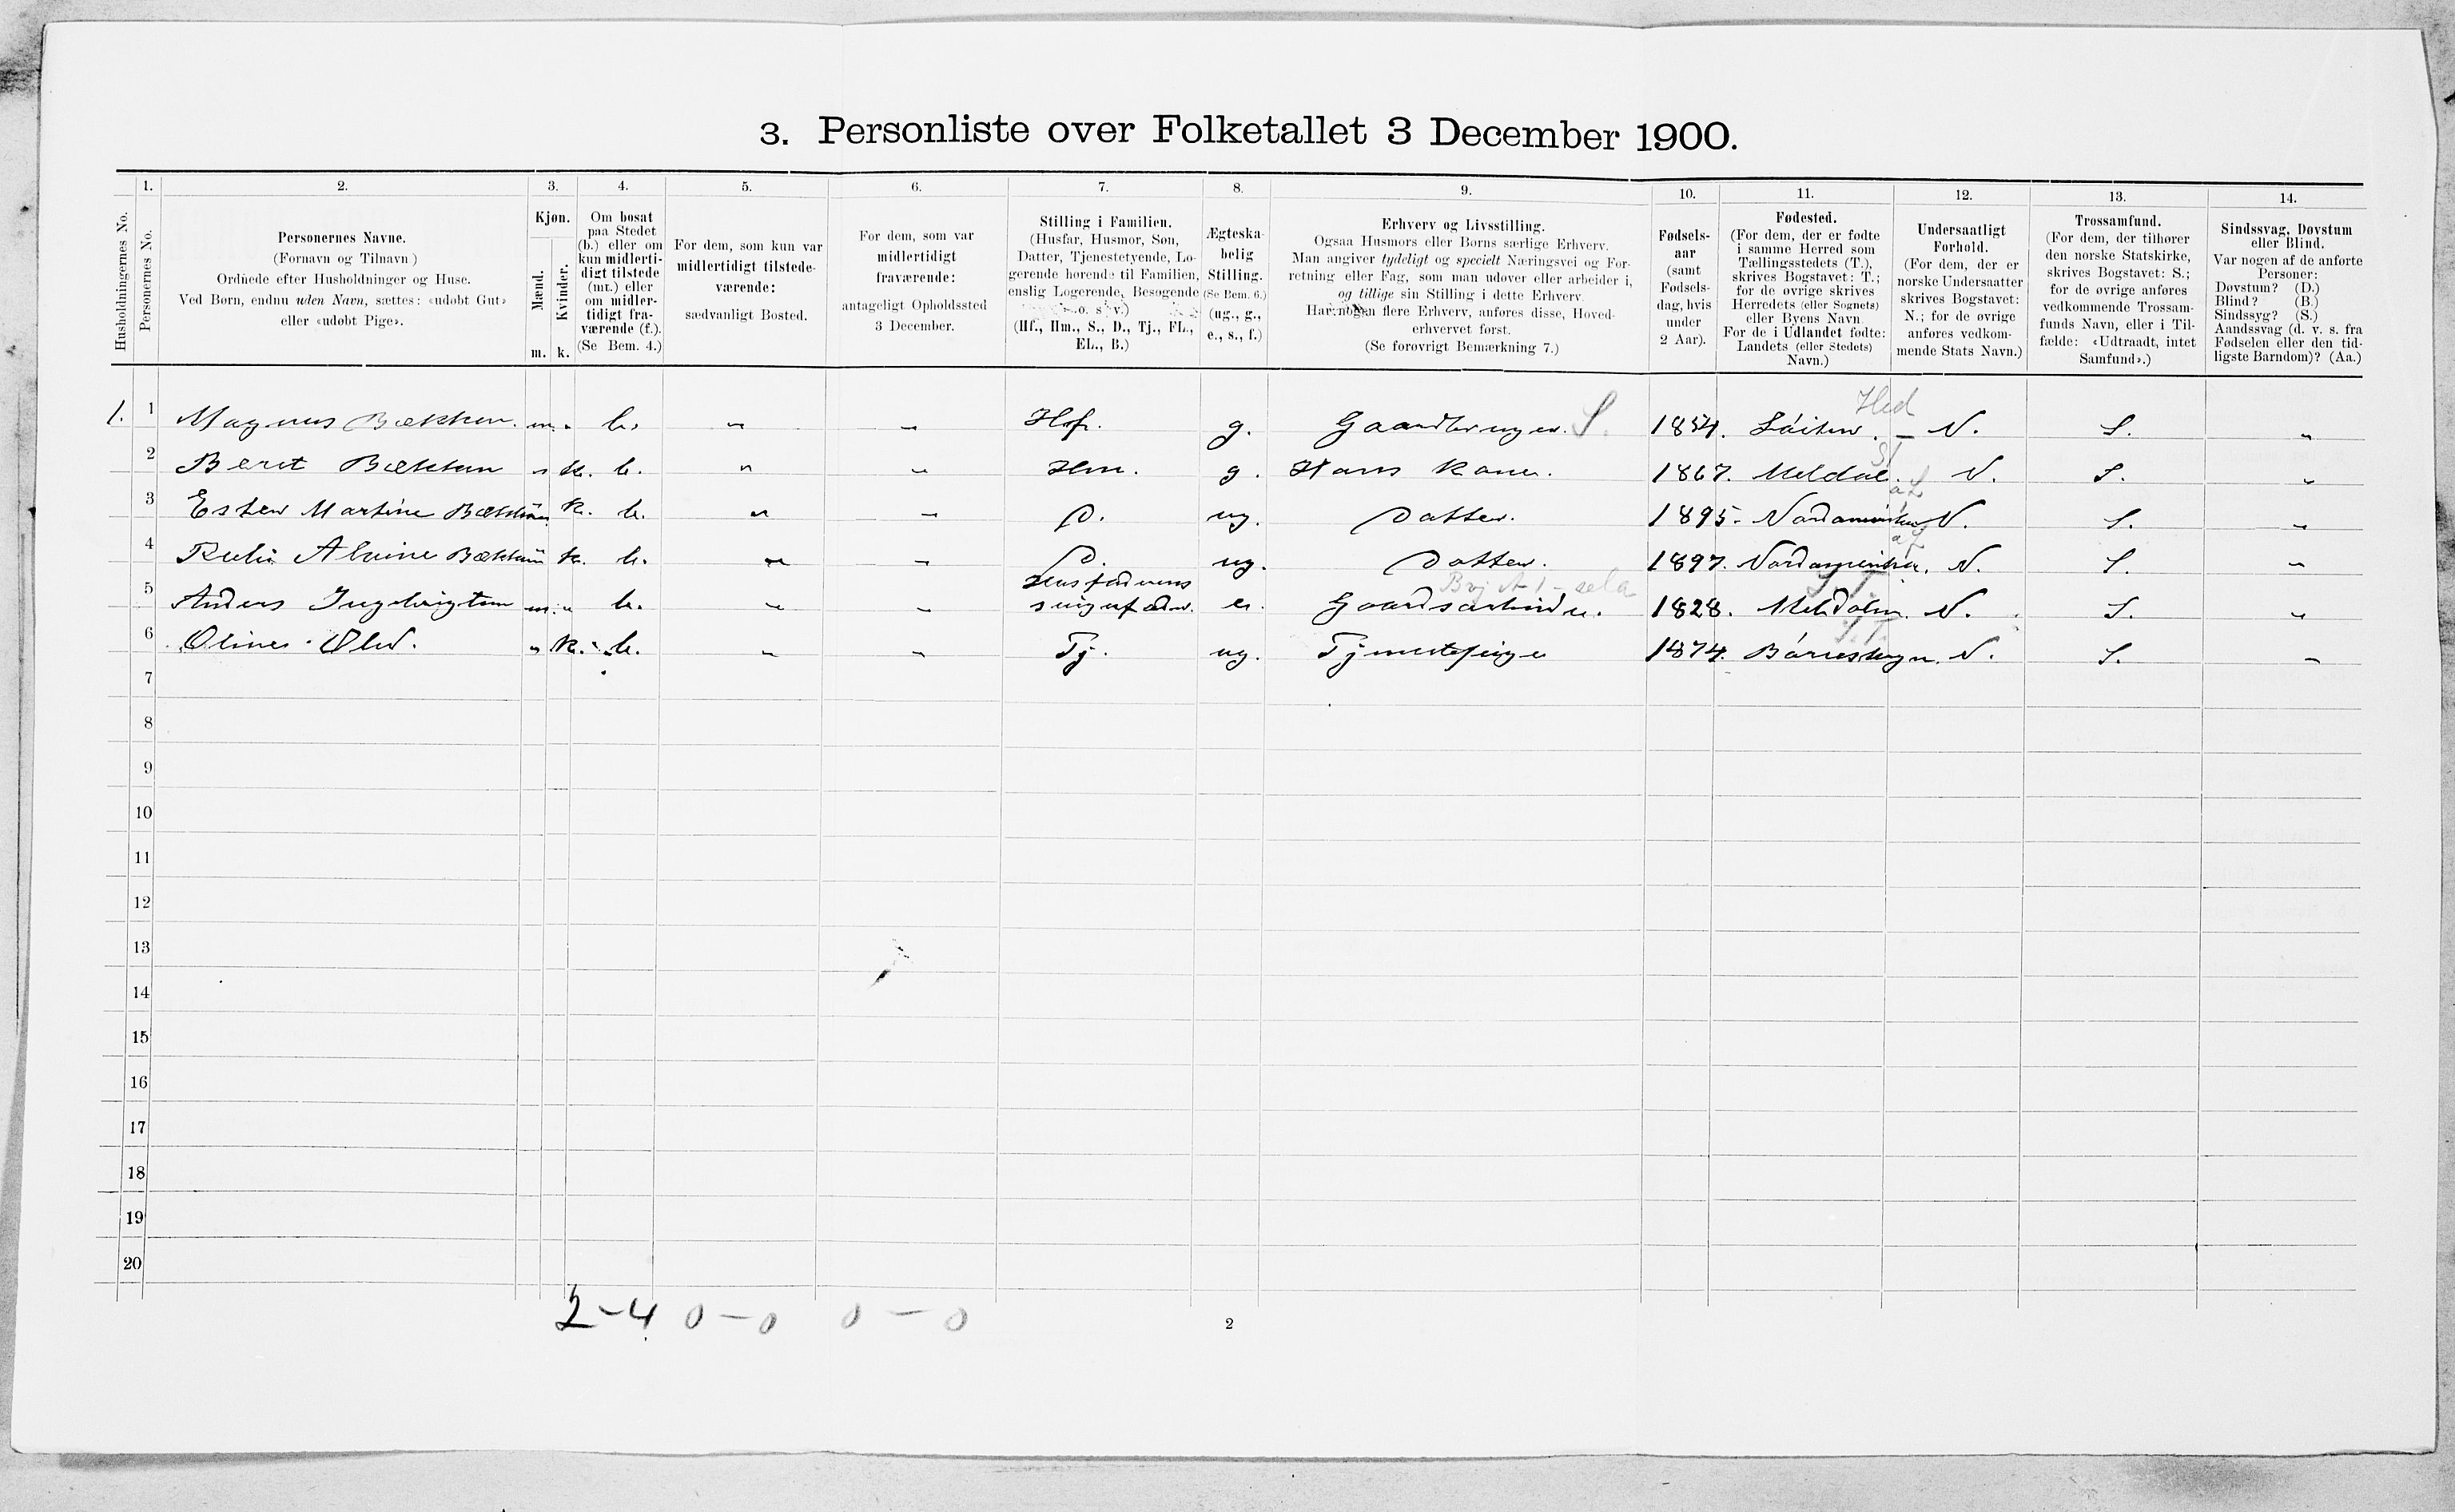 3. Personliste over Folketallet 3 December 1900.
1. 2. 3. 4. 5. 6. 7. 8. 9. 10. 11. 12. 13. 14.
Husholdningernes No.
Personernes No.
Personernes Navne.
(Fornavn og Tilnavn)
Ordnede efter Husholdninger og Huse.
Ved Børn, endnu uden Navn, sættes: «udøbt Gut»
eller «udøbt Pige».
Kjøn.
Mænd.
Kvinder.
m. k.
Om bosat
paa Stedet
(b.) eller om
kun midlerti-
digt tilstede
(mt.) eller
om midler-
tidigt fra-
værende (f.).
(Se Bem. 4.)
For dem, som kun var
midlertidigt tilstede-
værende:
sædvanligt Bosted.
For dem, som var
midlertidigt
fraværende:
antageligt Opholdssted
3 December.
Stilling i Familien.
(Husfar, Husmor, Søn,
Datter, Tjenestetyende, Lo-
gerende hørende til Familien,
enslig Logerende, Besøgende
o. s. v.)
(Hf., Hm., S., D., Tj., FL.,
EL., B.)
Ægteska-
belig
Stilling.
(Se Bem. 6.)
(ug., g.,
e., s., f.)
Erhverv og Livsstilling.
Ogsaa Husmors eller Børns særlige Erhverv.
Man angiver tydeligt og specielt Næringsvei og For-
retning eller Fag, som man udøver eller arbeider i,
og tillige sin Stilling i dette Erhverv.
Har nogen flere Erhverv, anføres disse, Hoved-
erhvervet først.
(Se forøvrigt Bemærkning 7.)
Fødsels-
aar
(samt
Fødsels-
dag, hvis
under
2 Aar).
Fødested.
(For dem, der er fødte
i samme Herred som
Tællingsstedets (T.),
skrives Bogstavet: T.;
for de øvrige skrives
Herredets (eller Sognets)
eller Byens Navn.
For de i Udlandet fødte:
Landets (eller Stedets)
Navn.)
Undersaatligt
Forhold.
(For dem, der er
norske Undersaatter
skrives Bogstavet:
N.; for de øvrige
anføres vedkom-
mende Stats Navn.)
Trossamfund.
(For dem, der tilhører
den norske Statskirke,
skrives Bogstavet: S.;
for de øvrige anføres
vedkommende Trossam-
funds Navn, eller i Til-
fælde: «Udtraadt, intet
Samfund».)
Sindssvag, Døvstum
eller Blind.
Var nogen af de anførte
Personer:
Døvstum? (D.)
Blind? (B.)
Sindssyg? (S.)
Aandssvag (d. v. s. fra
Fødselen eller den tid-
ligste Barndom)? (Aa.)
Hed
1. 1 Magnus Bækken. m. " b. " " Hf. g. Gaardbruger. S. 1854. Løiten. — N. S. "
2 Beret Bækken " k. b. " " Hm. g. Hans Kone. 1867. Meldal. N. S. "
3 Ester Martine Bækken k. b. " " D. ug. Datter. 1895. Nordamerika N. S. "
4 Alvine Bækken k. b. " " D. ug. Datter. 1897. Nordamerika. N. S. "
Husfaderens
5 Anders Ingebrigtsen m. " b. " " svigefader. e. Gaardsarbeider. 1828. Meldalen. N. S. "
6 Oline " k. b. " " Tj. ug. Tjenestepige 1874. Børseskogn. N. S. "
7
8
9
10
11
12
13
14
15
16
17
18
19
20
2-4 0-0 0-0
2